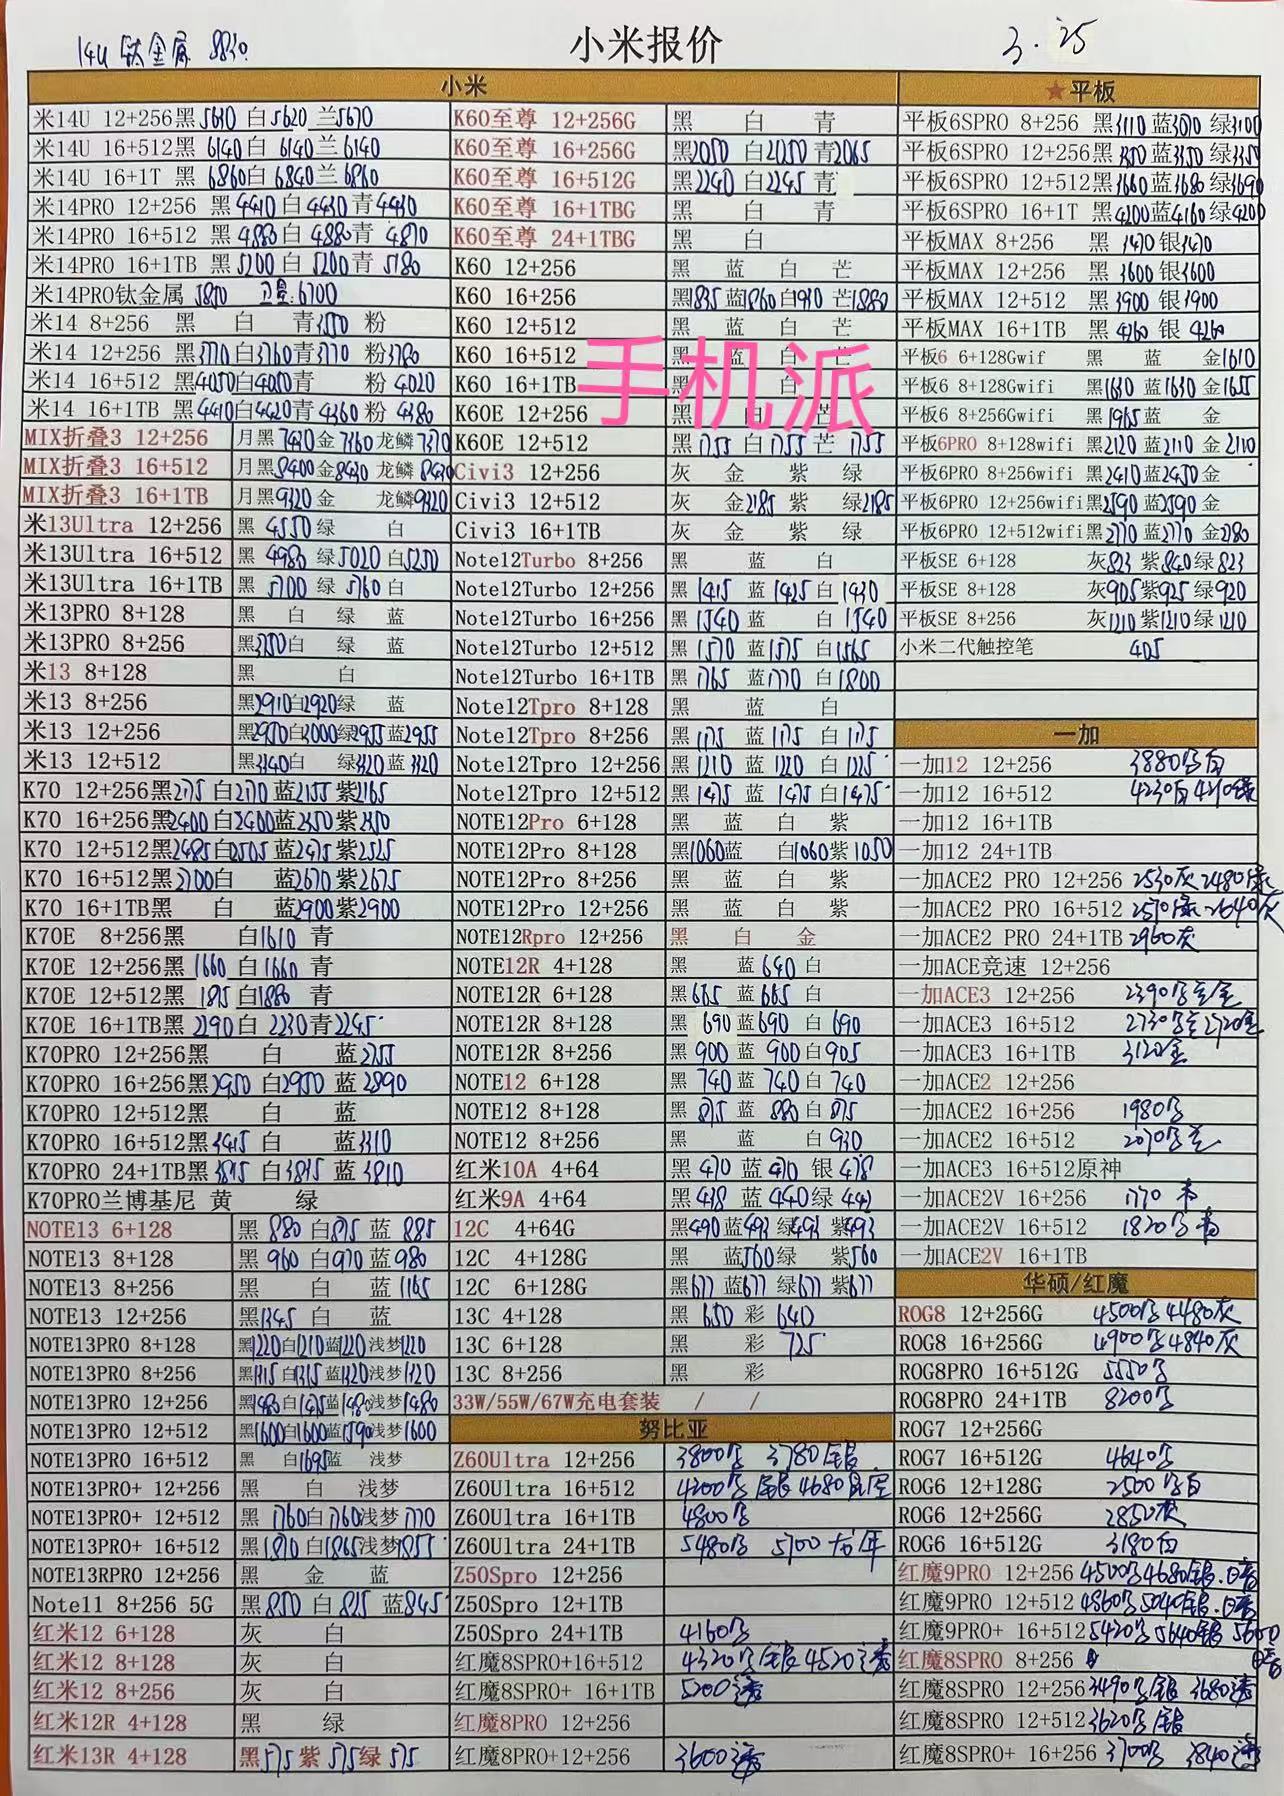 14U 钛金属 8830
小米报价
3.25
小米
米14U 12+256黑5610 白5620 兰5670
米14U 16+512黑 6140白 6140兰 6140
米14U 16+1T 黑 6860白 6840兰 6860
米14PRO 12+256 黑 4410白 4430青4430
米14PRO 16+512 黑 4880白 4880青 4870
米14PRO 16+1TB 黑 5200白 5200青 5180
米14PRO钛金属 5850 卫星:6700
米14 8+256 黑 白 青3550 粉
米14 12+256 黑3770白3760青3770 粉3780
米14 16+512 黑4050白4050青 粉4020
米14 16+1TB 黑4410白4420青4360粉4380
MIX折叠3 12+256 月黑7430金7360龙鳞7370
MIX折叠3 16+512 月黑8400金8430龙鳞8430
MIX折叠3 16+1TB 月黑9320金 龙鳞9320
米13Ultra 12+256 黑 4550绿 白
米13Ultra 16+512 黑 4980 绿5020白5250
米13Ultra 16+1TB 黑 5700 绿 5760 白
米13PRO 8+128 黑 白 绿 蓝
米13PRO 8+256 黑 白 绿 蓝
米13 8+128 黑 白
米13 8+256 黑2910白2920绿 蓝
米13 12+256 黑2950白3000绿2955蓝2955
米13 12+512 黑3340白 绿3320蓝3320
K70 12+256黑2175白2170蓝2155紫2165
K70 16+256黑2400白2400蓝2350紫2350
K70 12+512黑2485白2505蓝2475紫2525
K70 16+512黑2700白 蓝2670紫2675
K70 16+1TB黑 白 蓝2900紫2900
K70E 8+256黑 白1610 青
K70E 12+256黑 1660 白1660 青
K70E 12+512黑 1875 白1880 青
K70E 16+1TB黑 2290白 2230青2245
K70PRO 12+256黑 白 蓝2755
K70PRO 16+256黑2950 白2950 蓝 2890
K70PRO 12+512黑 白 蓝
K70PRO 16+512黑3415 白 蓝3310
K70PRO 24+1TB黑3815 白3835 蓝 3810
K70PRO兰博基尼 黄 绿
NOTE13 6+128 黑 880 白875 蓝 885
NOTE13 8+128 黑 960 白970蓝980
NOTE13 8+256 黑 白 蓝1165
NOTE13 12+256 黑1345 白 蓝
NOTE13PRO 8+128 黑1220白1210蓝1220浅梦1220
NOTE13PRO 8+256 黑1315白1315蓝1320浅梦1320
NOTE13PRO 12+256 黑1480白1475蓝1480浅梦1480
NOTE13PRO 12+512 黑1600白1600蓝1590浅梦1600
NOTE13PRO 16+512 黑 白1695蓝 浅梦
NOTE13PRO+ 12+256 黑 白 浅梦
NOTE13PRO+ 12+512 黑 1760白1760浅梦1770
NOTE13PRO+ 16+512 黑1870白1865浅梦1855
NOTE13RPRO 12+256 黑 金 蓝
Note11 8+256 5G 黑850 白825 蓝845
红米12 6+128 灰 白
红米12 8+128 灰 白
红米12 8+256 灰 白
红米12R 4+128 黑 绿
红米13R 4+128 黑575 紫 575绿 575
K60至尊 12+256G 黑 白 青
K60至尊 16+256G 黑2050 白2050 青2065
K60至尊 16+512G 黑2240 白2245 青
K60至尊 16+1TBG 黑 白 青
K60至尊 24+1TBG 黑 白
K60 12+256 黑 蓝 白 芒
K60 16+256 黑1835蓝1860白1910芒1880
K60 12+512 黑 蓝 白 芒
K60 16+512 黑 蓝 白 芒
K60 16+1TB 黑 白
K60E 12+256 黑 白 芒
K60E 12+512 黑 1755 白1755 芒 1755
Civi3 12+256 灰 金 紫 绿
Civi3 12+512 灰 金2185 紫 绿2185
Civi3 16+1TB 灰 金 紫 绿
Note12Turbo 8+256 黑 蓝 白
Note12Turbo 12+256 黑 1415 蓝 1425白 1430
Note12Turbo 16+256 黑 1540 蓝 白 1540
Note12Turbo 12+512 黑 1570 蓝1575 白1565
Note12Turbo 16+1TB 黑 1765 蓝1770 白1800
Note12Tpro 8+128 黑 蓝 白
Note12Tpro 8+256 黑 1175 蓝 1175 白 1175
Note12Tpro 12+256 黑1210 蓝 1220 白1225
Note12Tpro 12+512 黑1475 蓝 1475白1475
NOTE12Pro 6+128 黑 蓝 白 紫
NOTE12Pro 8+128 黑1060蓝 白1060紫1050
NOTE12Pro 8+256 黑 蓝 白 紫
NOTE12Pro 12+256 黑 蓝 白 紫
NOTE12Rpro 12+256 黑 白 金
NOTE12R 4+128 黑 蓝640白
NOTE12R 6+128 黑665 蓝665 白
NOTE12R 8+128 黑 690蓝690 白690
NOTE12R 8+256 黑 900 蓝 900白905
NOTE12 6+128 黑 740 蓝 740白740
NOTE12 8+128 黑 875 蓝 880白875
NOTE12 8+256 黑 蓝 白930
红米10A 4+64 黑 470 蓝 470 银 478
红米9A 4+64 黑 438 蓝 440绿 442
12C 4+64G 黑490蓝493绿493紫493
12C 4+128G 黑 蓝560绿 紫560
12C 6+128G 黑677蓝677绿677紫677
13C 4+128 黑 650 彩 640
13C 6+128 黑 彩 725
13C 8+256 黑 彩
33W/55W/67W充电套装 / /
努比亚
Z60Ultra 12+256 3800黑 3780银
Z60Ultra 16+512 4200黑 银 4680星空
Z60Ultra 16+1TB 4800黑
Z60Ultra 24+1TB 5480黑 5700龙年
Z50Spro 12+256
Z50Spro 12+1TB
Z50Spro 24+1TB 4160黑
红魔8SPRO+16+512 4320黑银 4520透
红魔8SPRO+ 16+1TB 5200透
红魔8PRO 12+256
红魔8PRO+12+256 3600透
★平板
平板6SPRO 8+256 黑3110蓝3070 绿3100
平板6SPRO 12+256黑3350蓝3350 绿3350
平板6SPRO 12+512黑3660蓝3680 绿3690
平板6SPRO 16+1T 黑4200蓝4160 绿4200
平板MAX 8+256 黑 银
平板MAX 12+256 黑 3600银3600
平板MAX 12+512 黑 3900 银 3900
平板MAX 16+1TB 黑 4260 银 4260
平板6 6+128Gwif 黑 蓝 金1610
平板6 8+128Gwifi 黑1630 蓝1630 金1655
平板6 8+256Gwifi 黑1965 蓝 金
平板6PRO 8+128wifi 黑2120 蓝2110 金2110
平板6PRO 8+256wifi 黑2410蓝2450 金
平板6PRO 12+256wifi黑2590蓝2590 金
平板6PRO 12+512wifi黑2770蓝2770 金2780
平板SE 6+128 灰823紫840绿823
平板SE 8+128 灰905紫925绿920
平板SE 8+256 灰1210紫1210绿1210
小米二代触控笔 405
一加
一加12 12+256 3880黑白
一加12 16+512 4230白
一加12 16+1TB
一加12 24+1TB
一加ACE2 PRO 12+256 2530灰2480绿
一加ACE2 PRO 16+512 2570绿2640灰
一加ACE2 PRO 24+1TB 2960灰
一加ACE竞速 12+256
一加ACE3 12+256 2390黑兰金
一加ACE3 16+512 2730黑兰2720金
一加ACE3 16+1TB 3120金
一加ACE2 12+256
一加ACE2 16+256 1980黑
一加ACE2 16+512 2070黑兰
一加ACE3 16+512原神
一加ACE2V 16+256 1770 青
一加ACE2V 16+512 1820黑青
一加ACE2V 16+1TB
华硕/红魔
ROG8 12+256G 4500黑4480灰
ROG8 16+256G 4900黑4840灰
ROG8PRO 16+512G 5550黑
ROG8PRO 24+1TB 8200黑
ROG7 12+256G
ROG7 16+512G 4640黑
ROG6 12+128G 2500黑白
ROG6 12+256G 2850灰
ROG6 16+512G 3180白
红魔9PRO 12+256 4500黑4680银.暗
红魔9PRO 12+512 4860黑5040银.暗
红魔9PRO+ 16+512 5420黑5640银 5600暗
红魔8SPRO 8+256
红魔8SPRO 12+256 3490黑银 3680透
红魔8SPRO 12+512 3620黑银
红魔8SPRO+ 16+256 3700黑 3840透
手机派